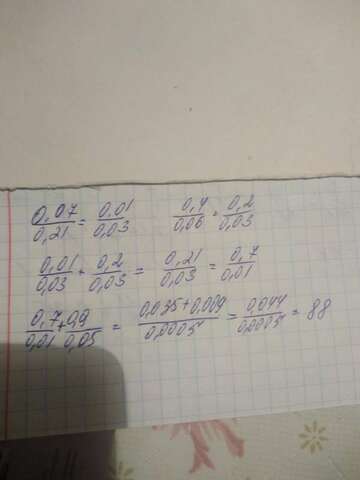 0,07/0,21 = 0,01/0,03    0,4/0,06 = 0,2/0,03
0,01/0,03 + 0,2/0,03 = 0,21/0,03 = 0,7/0,01
0,7/0,01 + 0,9/0,05 = 0,035+0,009/0,0005 = 0,044/0,0005 = 88